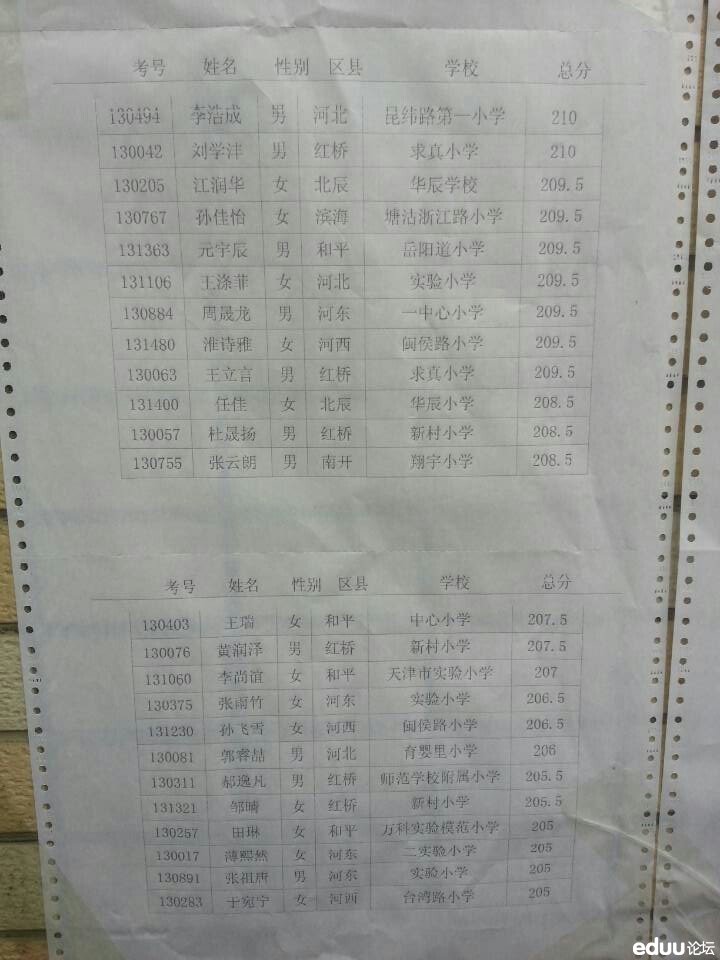 考号 姓名 性别 区县 学校 总分
130494 李浩成 男 河北 昆纬路第一小学 210
130042 刘学沣 男 红桥 求真小学 210
130205 江润华 女 北辰 华辰学校 209.5
130767 孙佳怡 女 滨海 塘沽浙江路小学 209.5
131363 元宇辰 男 和平 岳阳道小学 209.5
131106 王涤菲 女 河北 实验小学 209.5
130884 周晟龙 男 河东 一中心小学 209.5
131480 淮诗雅 女 河西 闽侯路小学 209.5
130063 王立言 男 红桥 求真小学 209.5
131400 任佳 女 北辰 华辰小学 208.5
130057 杜晟扬 男 红桥 新村小学 208.5
130755 张云朗 男 南开 翔宇小学 208.5
考号 姓名 性别 区县 学校 总分
130403 王瑞 女 和平 中心小学 207.5
130076 黄润泽 男 红桥 新村小学 207.5
131060 李尚谊 女 和平 天津市实验小学 207
130375 张雨竹 女 河东 实验小学 206.5
131230 孙飞雪 女 河西 闽侯路小学 206.5
130081 郭睿喆 男 河北 育婴里小学 206
130311 郝逸凡 男 红桥 师范学校附属小学 205.5
131321 邹晴 女 红桥 新村小学 205.5
130257 田琳 女 和平 万科实验模范小学 205
130017 薄熙然 女 河东 二实验小学 205
130891 张祖唐 男 河东 实验小学 205
130283 于宛宁 女 河西 台湾路小学 205
eduu论坛